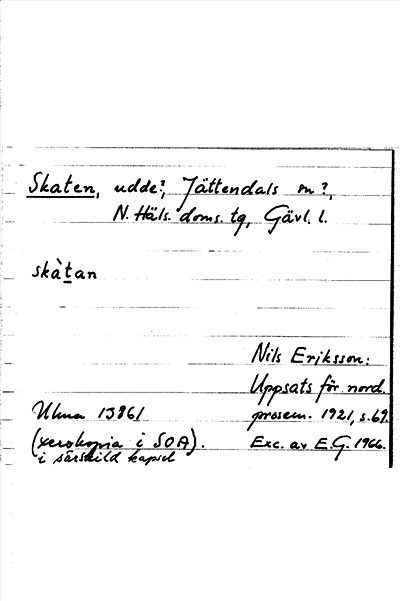 Skaten, udde?, Jättendals sn?,
N. Häls. doms. tg, Gävl. l.
skàtan
Nils Eriksson:
Uppsats för nord.
Ulma 13861 prosem. 1921, s. 69.
(xerokopia i SOA). Exc. av E.G. 1966.
i särskild kapsel